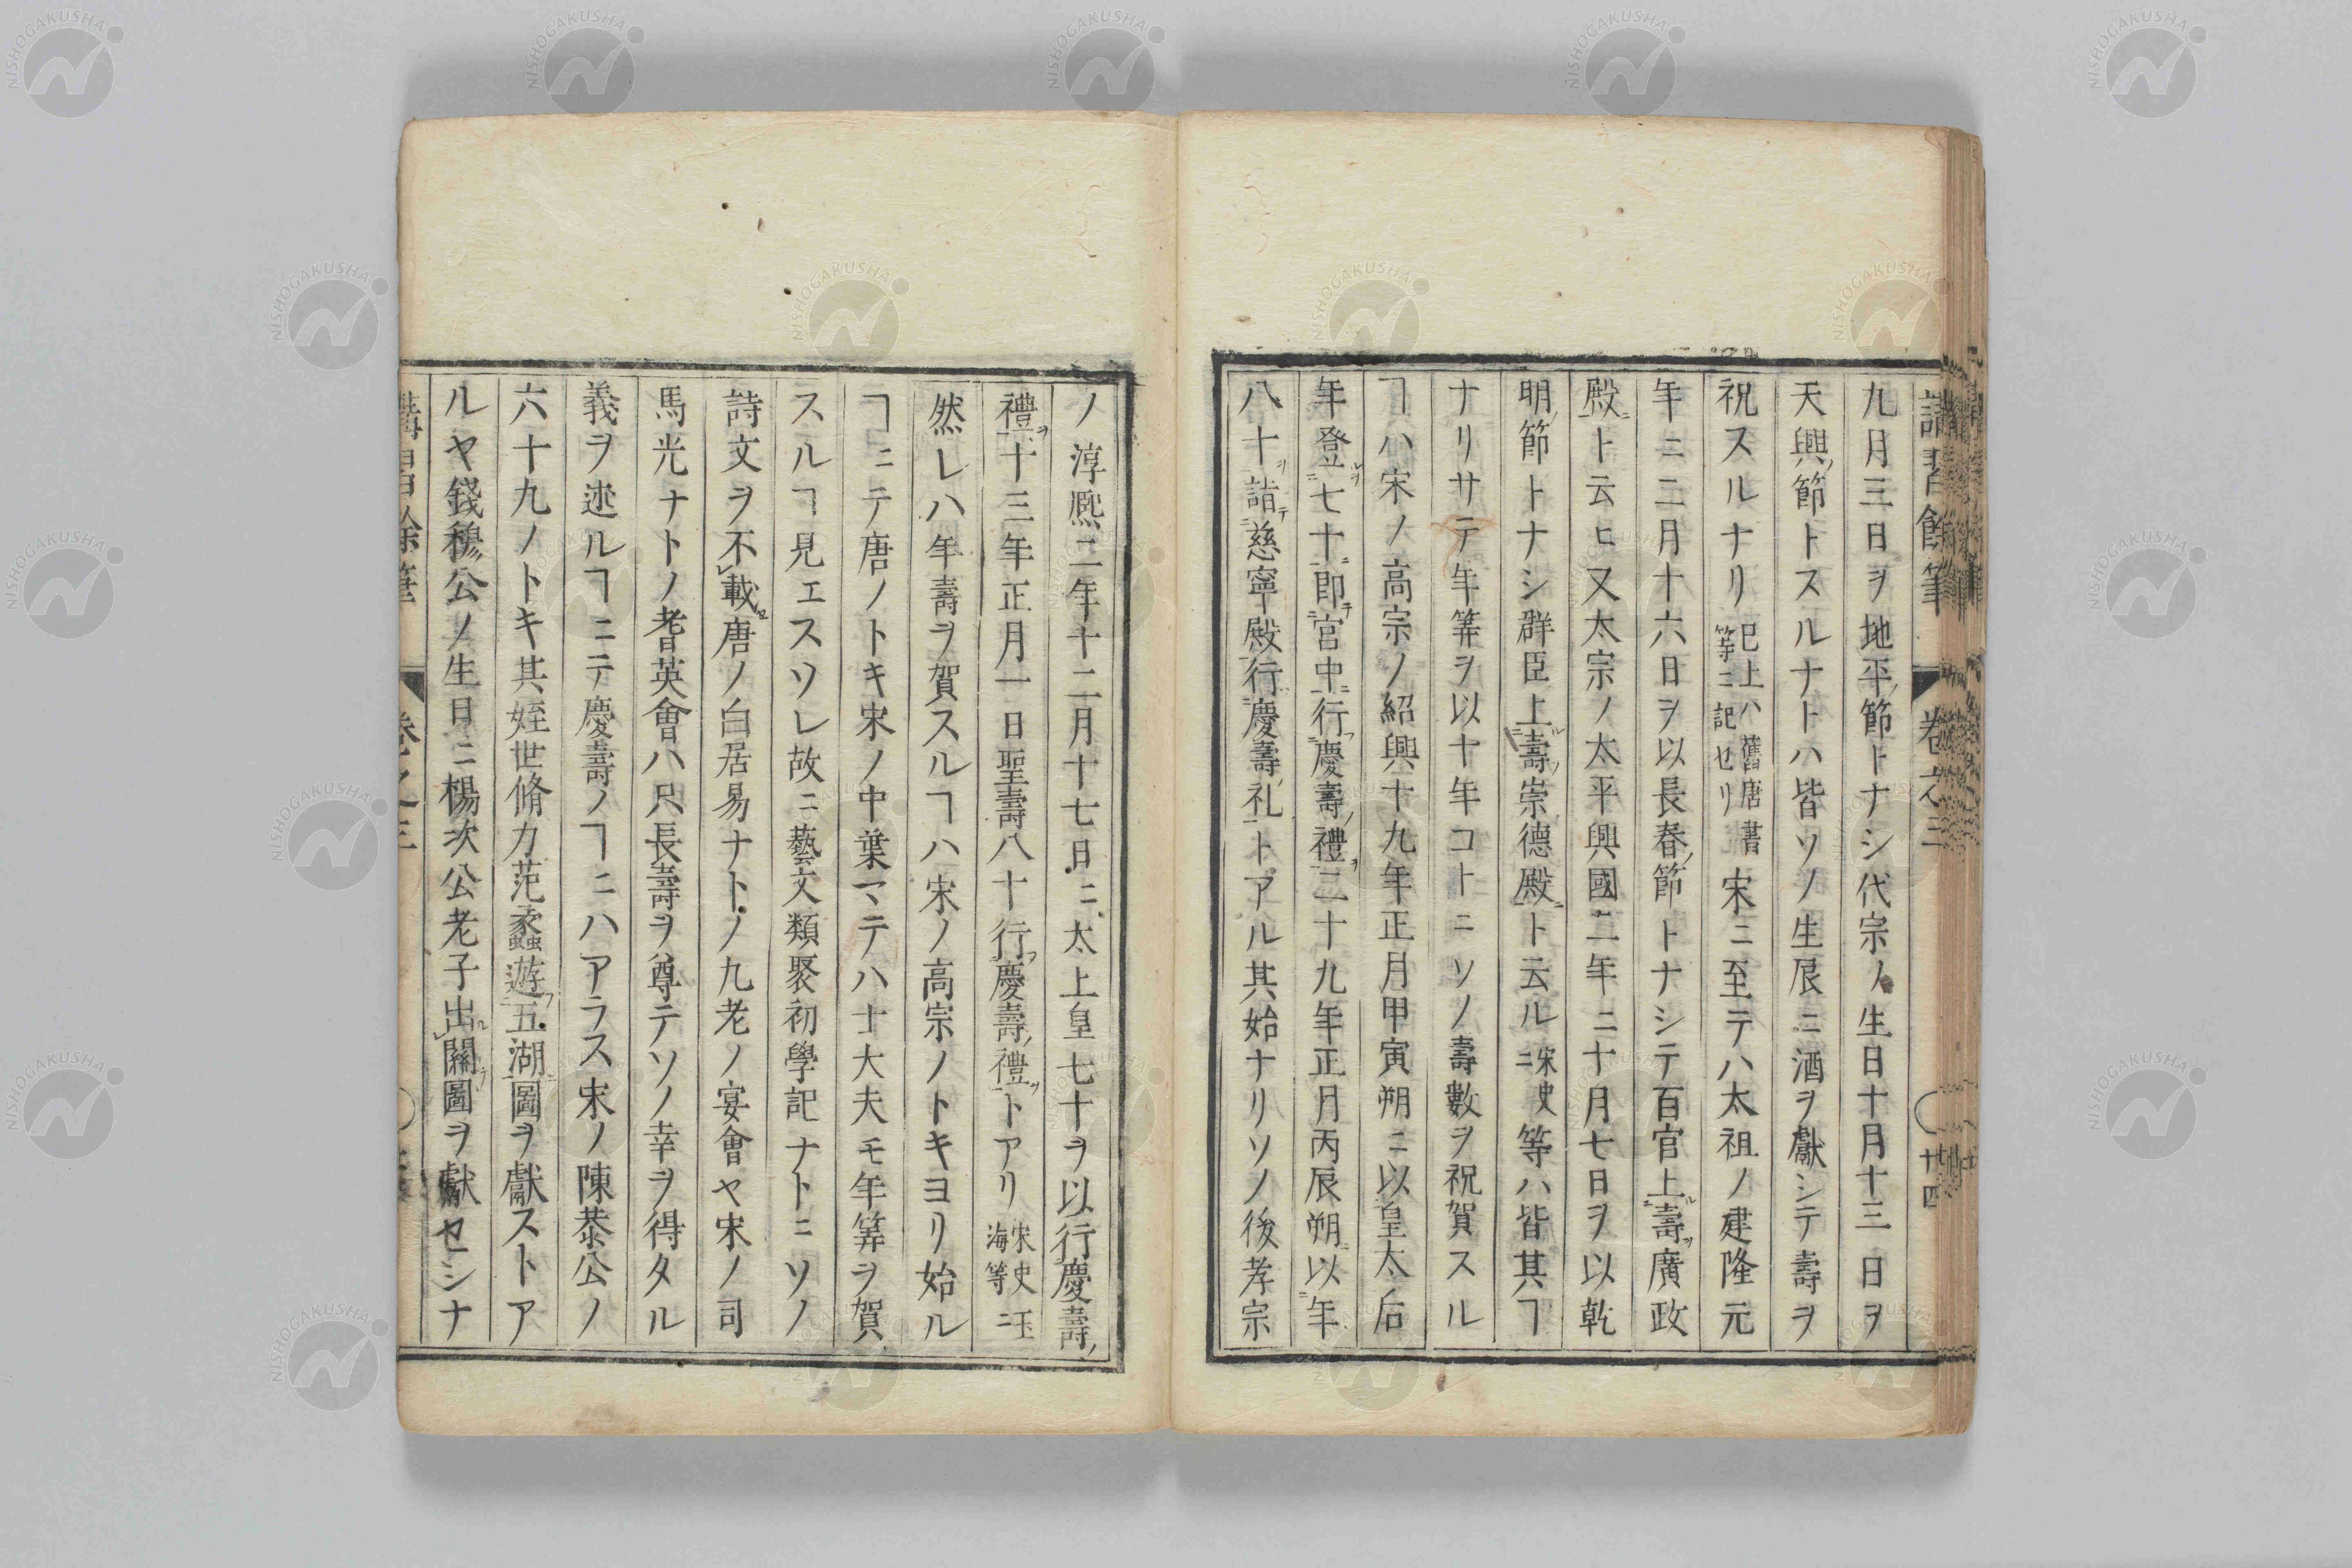 講習餘筆 卷之三 廿四
九月三日ヲ地平節トナシ代宗ノ生日十月十三日ヲ
天興節トスルナトハ皆ソノ生辰ニ酒ヲ獻シテ壽ヲ
祝スルナリ 已上ハ舊唐書等ニ記セリ 宋ニ至テハ太祖ノ建隆元
年ニ二月十六日ヲ以長春節トナシテ百官上壽廣政
殿ト云ヒ又太宗ノ太平興國二年ニ十月七日ヲ以乾
明節トナシ群臣上壽崇德殿ト云ル 宋史ニ 等ハ皆其ヿ
ナリサテ年筭ヲ以十年コトニソノ壽數ヲ祝賀スル
ヿハ宋ノ高宗ノ紹興十九年正月甲寅朔ニ以皇太后
年登七十即宮中行慶壽禮二十九年正月丙辰朔以年
八十詣慈寧殿行慶壽礼トアル其始ナリソノ後孝宗
ノ淳熈二年十二月十七日ニ太上皇七十ヲ以行慶壽
禮十三年正月一日聖壽八十行慶壽禮トアリ 宋史玉海等ニ
然レハ年壽ヲ賀スルヿハ宋ノ高宗ノトキヨリ始ル
ヿニテ唐ノトキ宋ノ中葉マテハ士大夫モ年筭ヲ賀
スルヿ見エスソレ故ニ藝文類聚初學記ナトニソノ
詩文ヲ不載唐ノ白居易ナトノ九老ノ宴會ヤ宋ノ司
馬光ナトノ耆英會ハ只長壽ヲ尊テソノ幸ヲ得タル
義ヲ述ルヿニテ慶壽ノヿニハアラス宋ノ陳恭公ノ
六十九ノトキ其姪世脩カ范蠡遊五湖圖ヲ獻ストア
ルヤ錢穆公ノ生日ニ楊次公老子出關圖ヲ獻セシナ
講習餘筆 卷之三